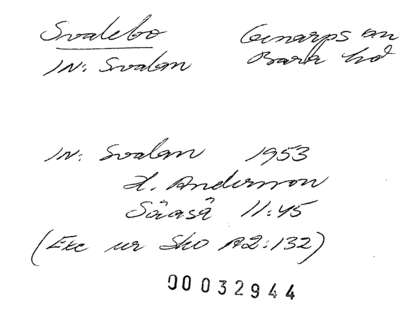 Svalebo Genarps sn
IN: Svalan Bara hd
IN: Svalan 1953
H. Andersson
Såaså 11:45
(Exc ur Sko A2:132)
00032944